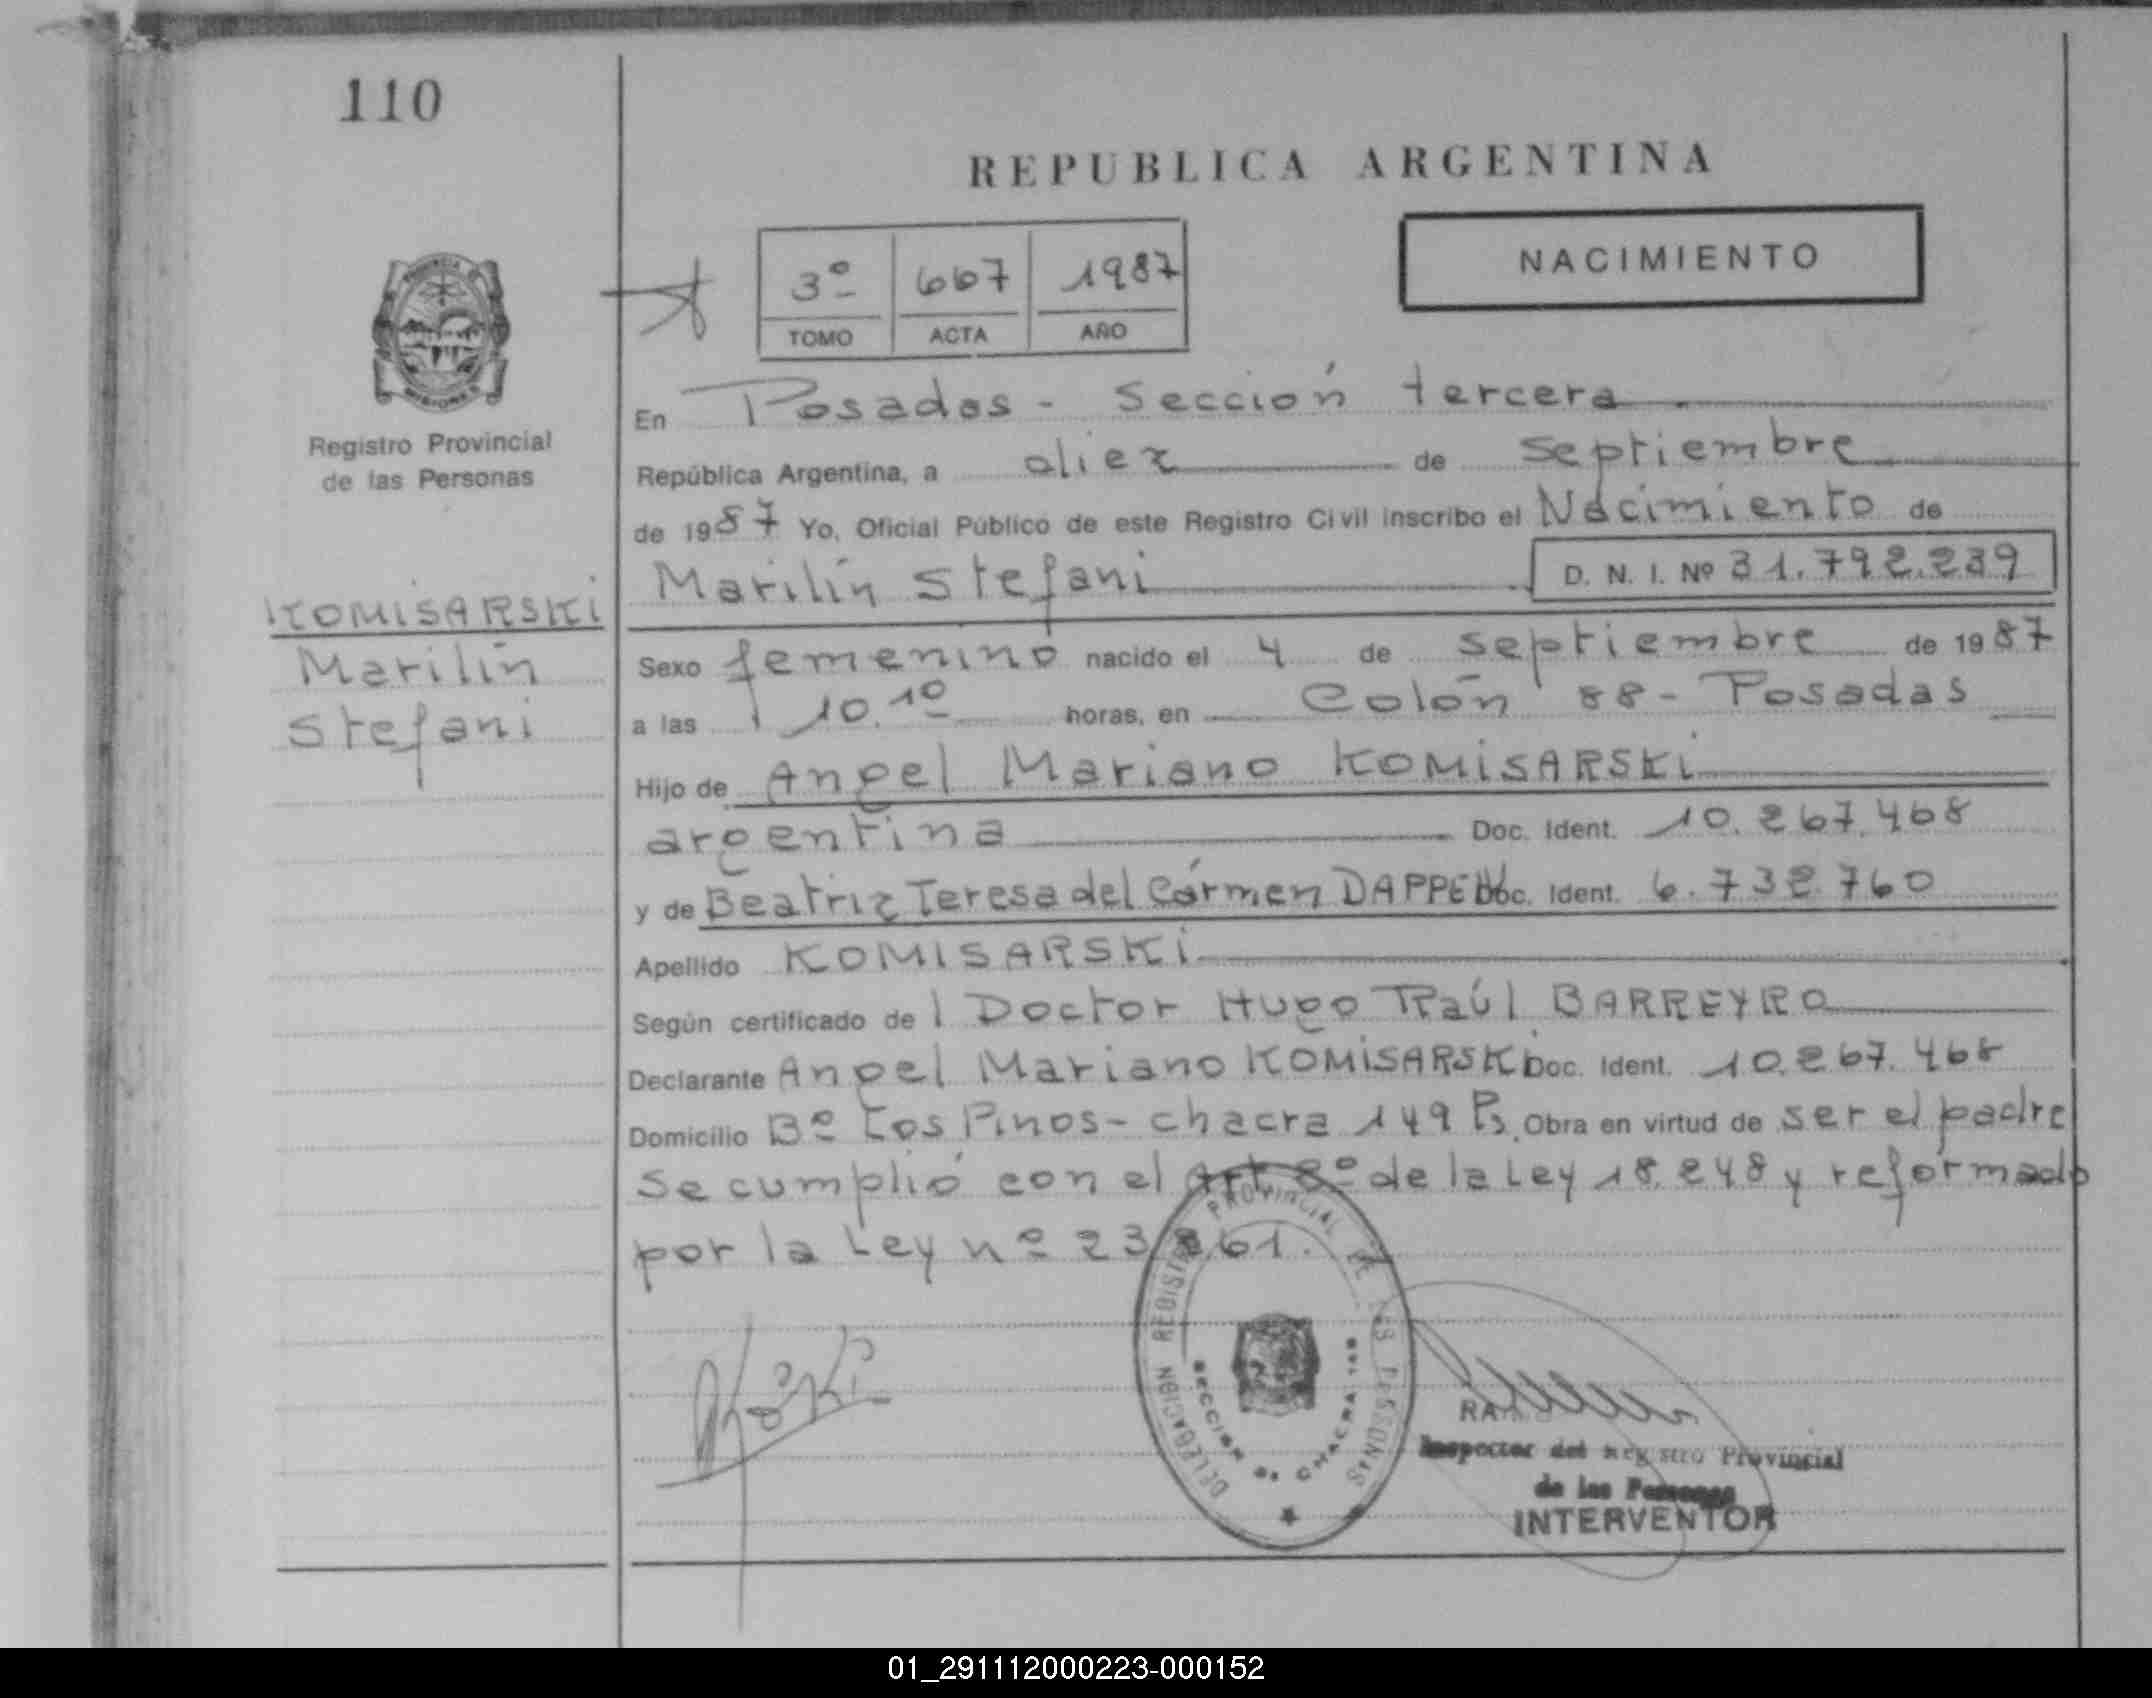 110
REPUBLICA ARGENTINA
NACIMIENTO
3º 667 1987
TOMO ACTA AÑO
Registro Provincial
de las Personas
KOMISARSKI
Marilín
Stefani
En Posadas - Sección tercera
República Argentina, a diez de septiembre
de 1987 Yo, Oficial Público de este Registro Civil inscribo el Nacimiento de
Marilín Stefani D. N. I. Nº 31.792.239
Sexo femenino nacido el 4 de septiembre de 1987
a las 10.10 horas, en Colón 88 - Posadas
Hijo de Angel Mariano KOMISARSKI
argentina Doc. Ident. 10.267.468
y de Beatriz Teresa del Cármen Doc. Ident. 6.732.760
Apellido KOMISARSKI
Según certificado del Doctor Hugo Raúl BARREYRO
Declarante Angel Mariano KOMISARSKI Doc. Ident. 10.267.468
Domicilio Bº Los Pinos - chacra 149 Ps. Obra en virtud de ser el padre
Se cumplió con el Art 8º de la Ley 18.248 y reformado
por la Ley nº 23
DELEGACION REGISTRO PROVINCIAL DE LAS PERSONAS
SECCION CHACRA
Inspector del Registro Provincial
de las Personas
INTERVENTOR
01_291112000223-000152